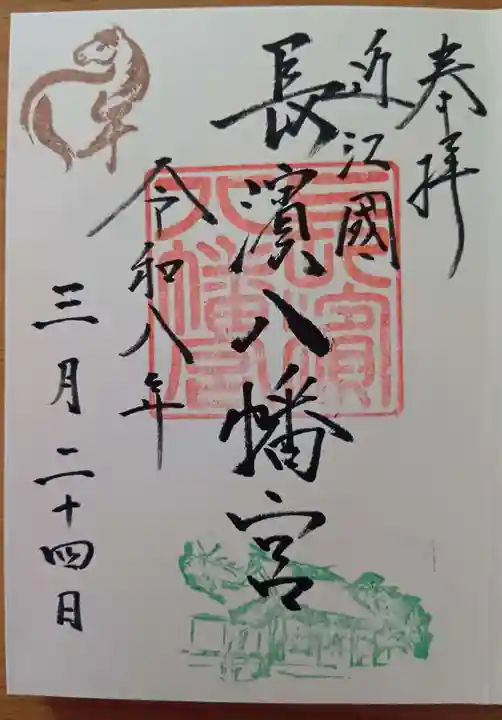 奉拝
近江國
長濱八幡宮
令和八年
三月二十四日
長濱
八幡宮
午